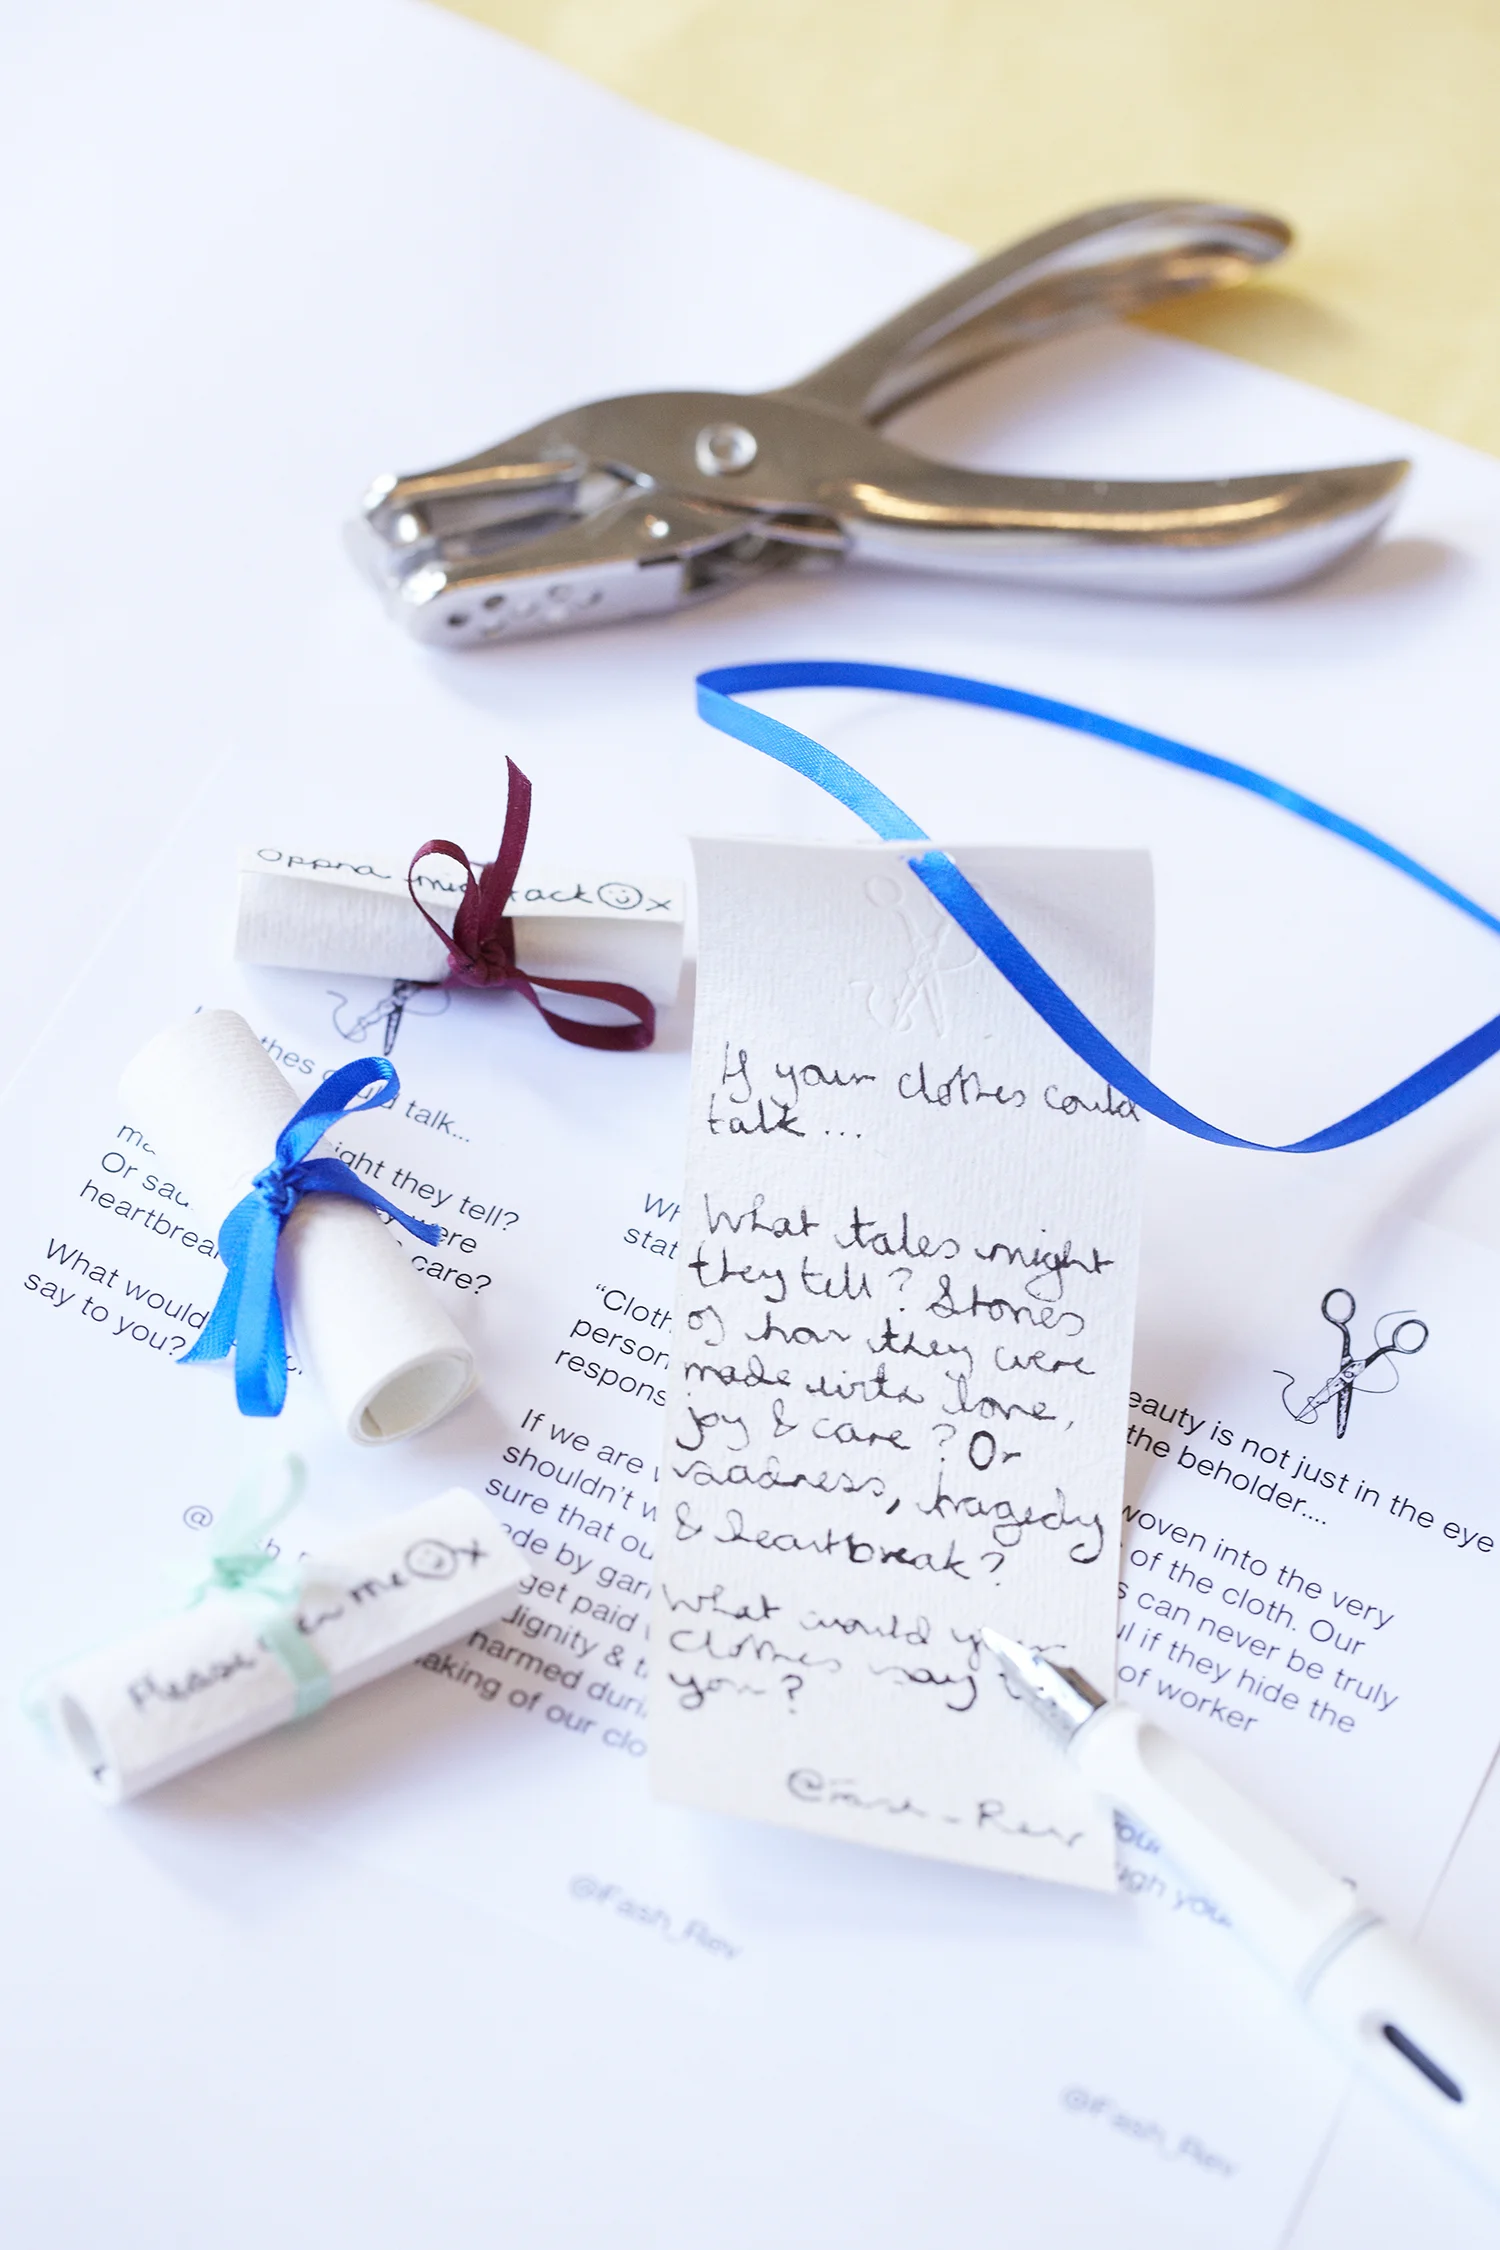 oppna mig tack ☺x
thes could talk...
ight they tell?
Or
heartbrea
care?
What would
say to you?
@
Please open me ☺x
Wh
stat
"Cloth
person
respons
If we are
shouldn't w
sure that ou
de by gar
get paid
dignity & t
harmed duri
aking of our clo
@Fash_Rev
If your clothes could
talk...
What tales might
they tell? Stories
of how they were
made with love,
joy & care? Or
sadness, tragedy
& heartbreak?
What would your
clothes say
you?
@Fash_Rev
eauty is not just in the eye
the beholder....
woven into the very
of the cloth. Our
s can never be truly
ul if they hide the
of worker
you
ugh you
@Fash_Rev